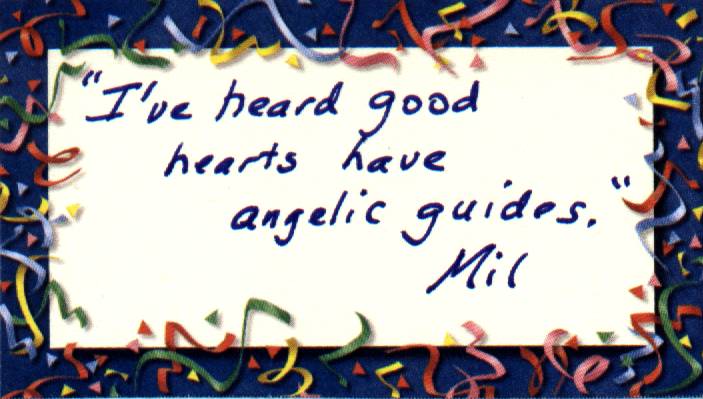 "I've heard good
hearts have
angelic guides."
Mil